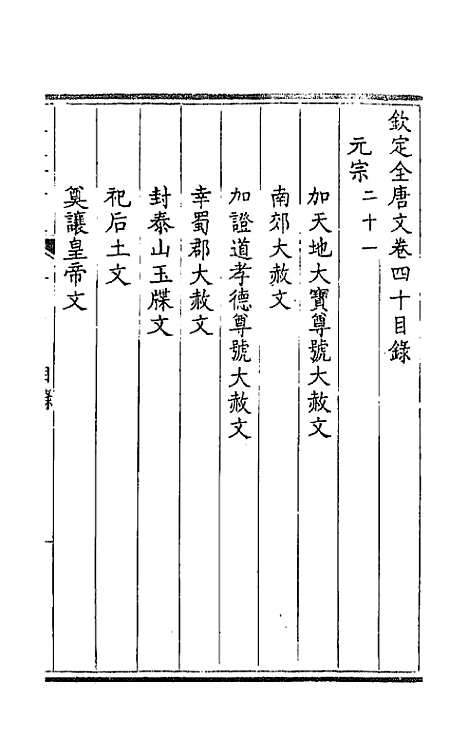 欽定全唐文卷四十目錄
元宗二十一
加天地大寶尊號大赦文
南郊大赦文
加證道孝德尊號大赦文
幸蜀郡大赦文
封泰山玉牒文
祀后土文
奠讓皇帝文
目錄